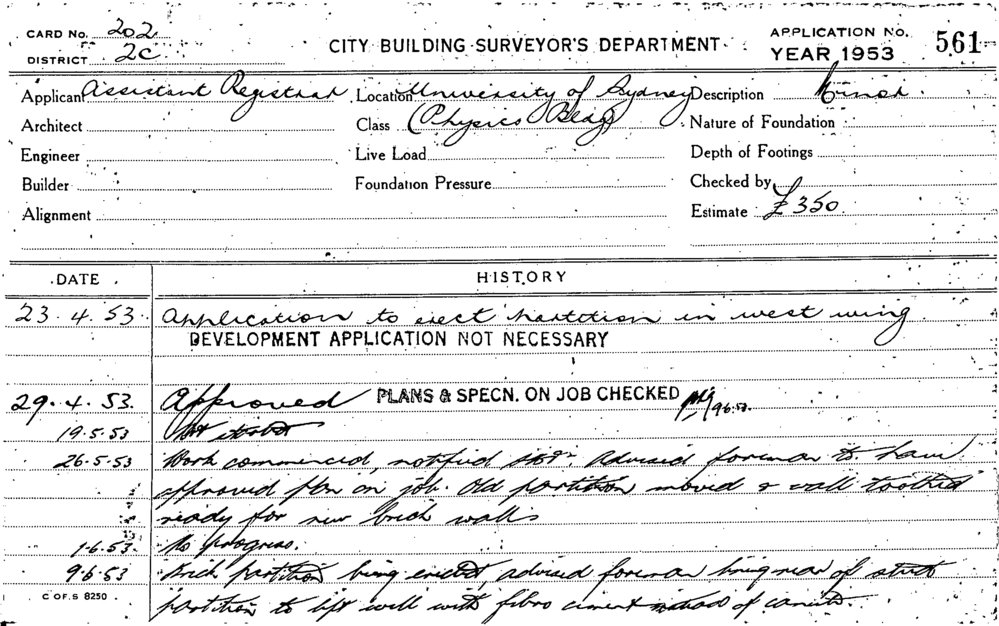 CARD No. 202
DISTRICT 2C
CITY BUILDING SURVEYOR'S DEPARTMENT
APPLICATION No. 561
YEAR 1953
Applicant Assistant Registrar Location University of Sydney Description Minor
Architect Class (Physics Bldg) Nature of Foundation
Engineer Live Load Depth of Footings
Builder Foundation Pressure Checked by
Alignment Estimate £350
DATE HISTORY
23.4.53. Application to erect partition in west wing
DEVELOPMENT APPLICATION NOT NECESSARY
29.4.53. Approved PLANS & SPECN. ON JOB CHECKED 9.6.53.
19.5.53 Not started
26.5.53 Work commenced, notified advised foreman to have
approved plan on job. Old partition moved & wall toothed
ready for new brick walls
1.6.53. No progress.
9.6.53 Brick partition being erected, advised foreman of
partition to lift well with fibro cement instead of
C OF.S 8250